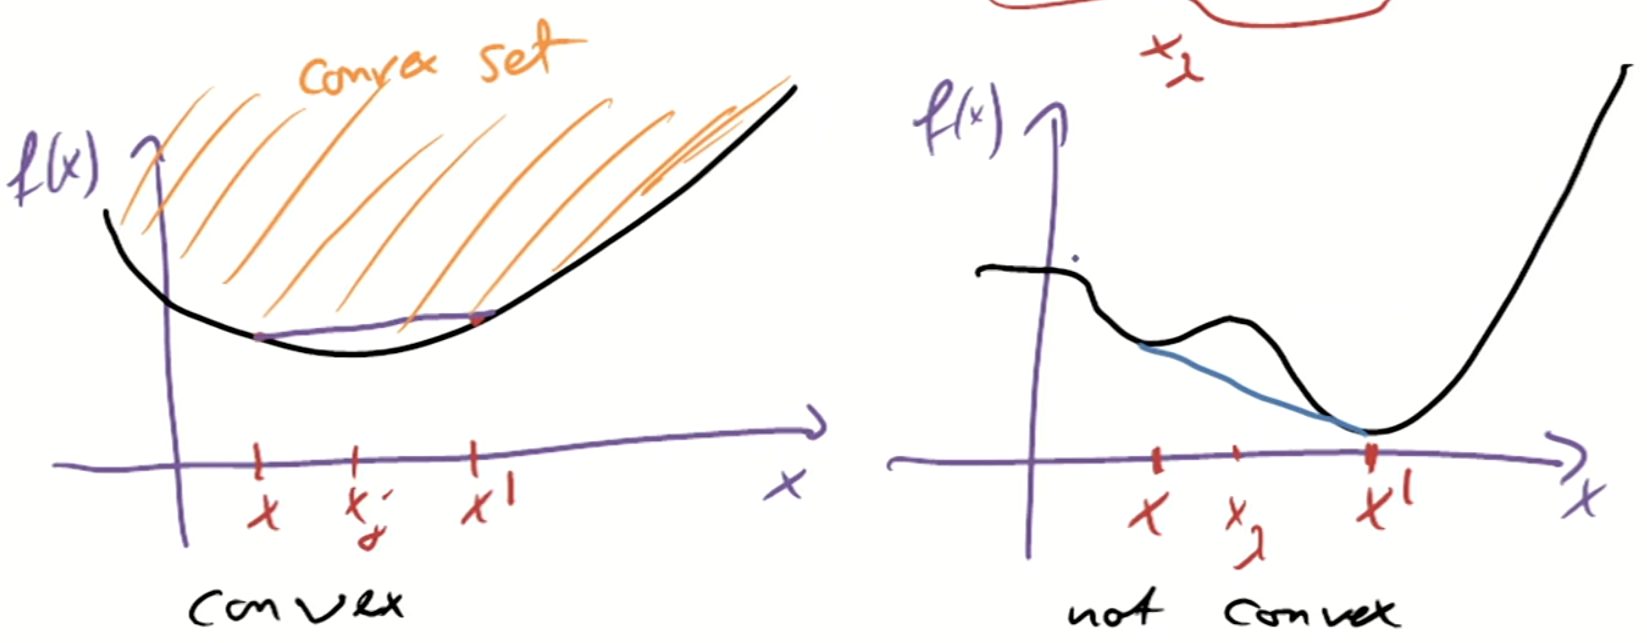 convex set
f(x)
x
x'
x
convex
x_λ
f(x)
x
x_λ
x'
x
not convex